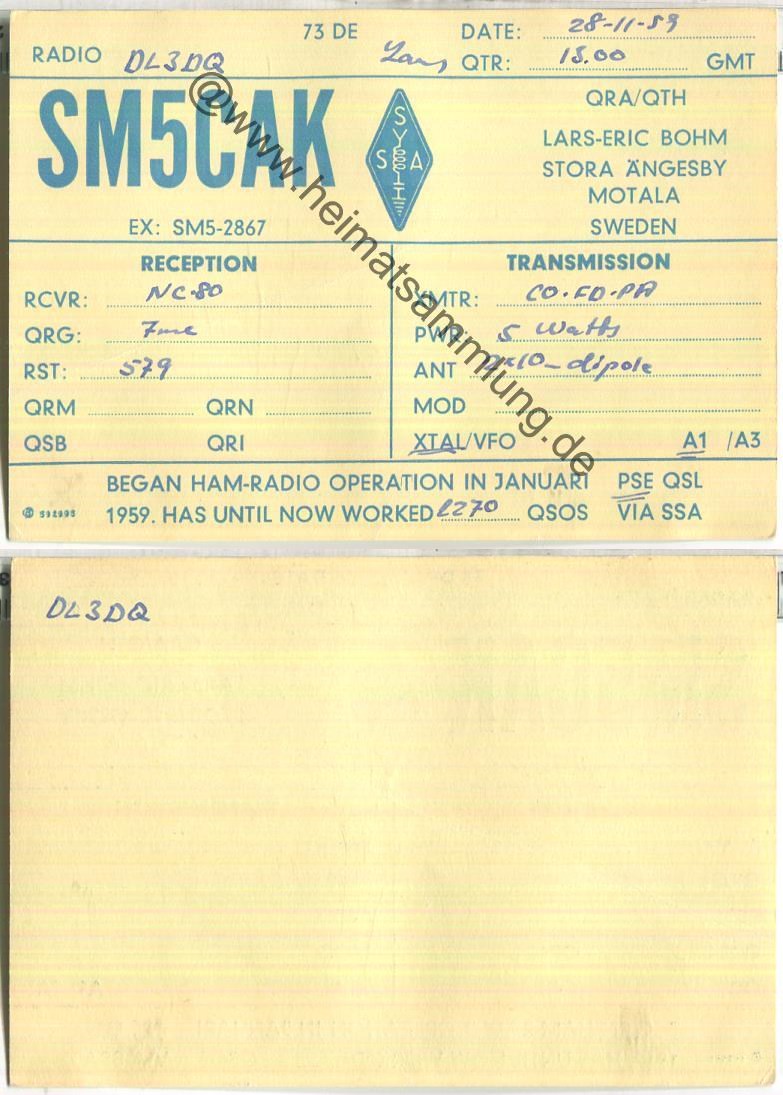 73 DE Lars
DATE: 28-11-59
RADIO DL3DQ
QTR: 15.00 GMT
SM5CAK
SSA
EX: SM5-2867
QRA/QTH
LARS-ERIC BOHM
STORA ÄNGESBY
MOTALA
SWEDEN
RECEPTION
RCVR: NC-80
QRG: 7mc
RST: 579
QRM QRN
QSB QRI
TRANSMISSION
XMTR: CO-FD-PA
PWR: 5 Watts
ANT 2x10-dipole
MOD
XTAL/VFO A1 /A3
BEGAN HAM-RADIO OPERATION IN JANUARI
1959. HAS UNTIL NOW WORKED QSOS
PSE QSL
VIA SSA
592995
@www.heimatsammlung.de
DL3DQ